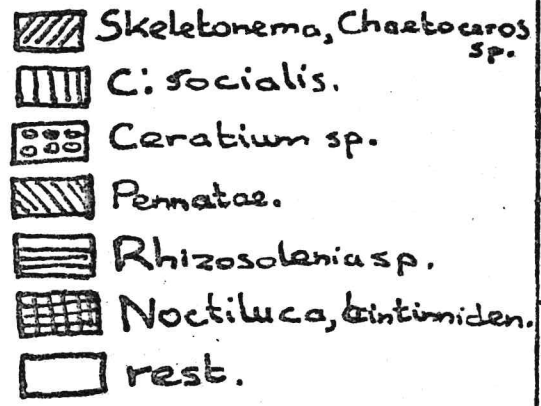 Skeletonema, Chaetoceros
sp.
C: socialis.
Ceratium sp.
Pennatae.
Rhizosolenia sp.
Noctiluca, tintinniden.
rest.